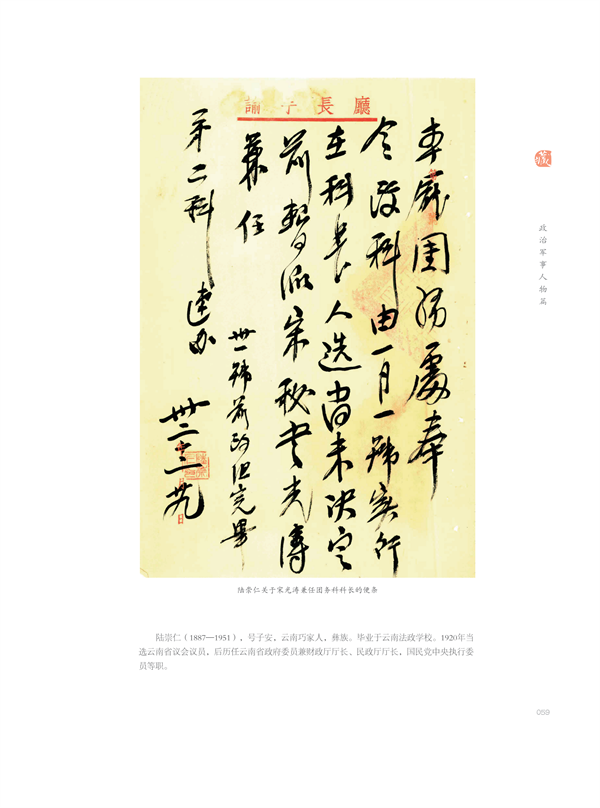 廳長手諭
本廳團務處奉
令改科由一月一號实行
在科长人选尚未决定
前暫派宋秘书光濤
兼任
卅一號前改组完畢
第二科 速办
政治军事人物篇
陆崇仁关于宋光涛兼任团务科科长的便条
陆崇仁（1887—1951），号子安，云南巧家人，彝族。毕业于云南法政学校。1920年当
选云南省议会议员，后历任云南省政府委员兼财政厅厅长、民政厅厅长，国民党中央执行委
员等职。
059